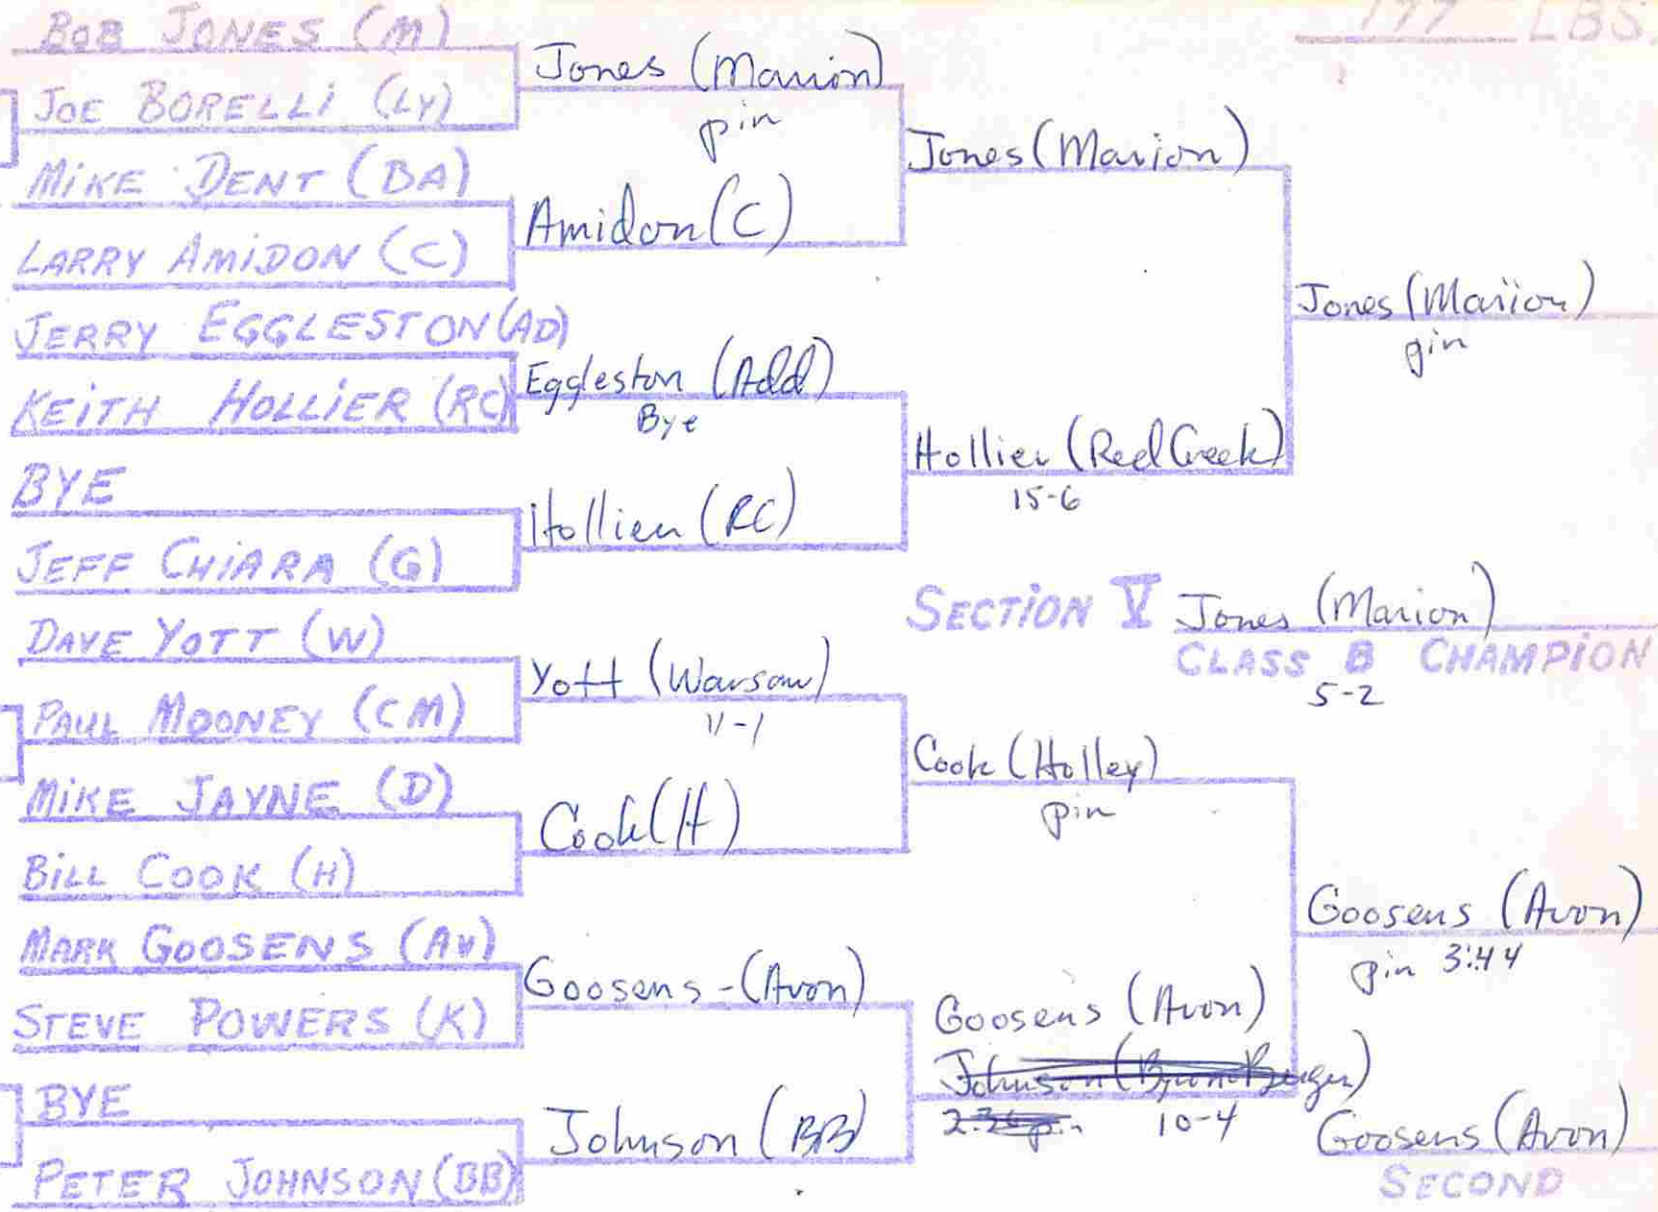 177 LBS.
BOB JONES (M)
JOE BORELLI (LY)
MIKE DENT (BA)
LARRY AMIDON (C)
JERRY EGGLESTON (AD)
KEITH HOLLIER (RC)
BYE
JEFF CHIARA (G)
DAVE YOTT (W)
PAUL MOONEY (CM)
MIKE JAYNE (D)
BILL COOK (H)
MARK GOOSENS (AV)
STEVE POWERS (K)
BYE
PETER JOHNSON (BB)
Jones (Marion)
pin
Amidon (C)
Eggleston (Add)
Bye
Hollier (RC)
Yott (Warsaw)
11-1
Cook (H)
Goosens - (Avon)
Johnson (BB)
Jones (Marion)
Hollier (Red Creek)
15-6
Cook (Holley)
pin
Goosens (Avon)
Johnson (Byron Bergen)
2:26 pin 10-4
Jones (Marion)
pin
SECTION V Jones (Marion)
CLASS B CHAMPION
5-2
Goosens (Avon)
pin 3:44
Goosens (Avon)
SECOND